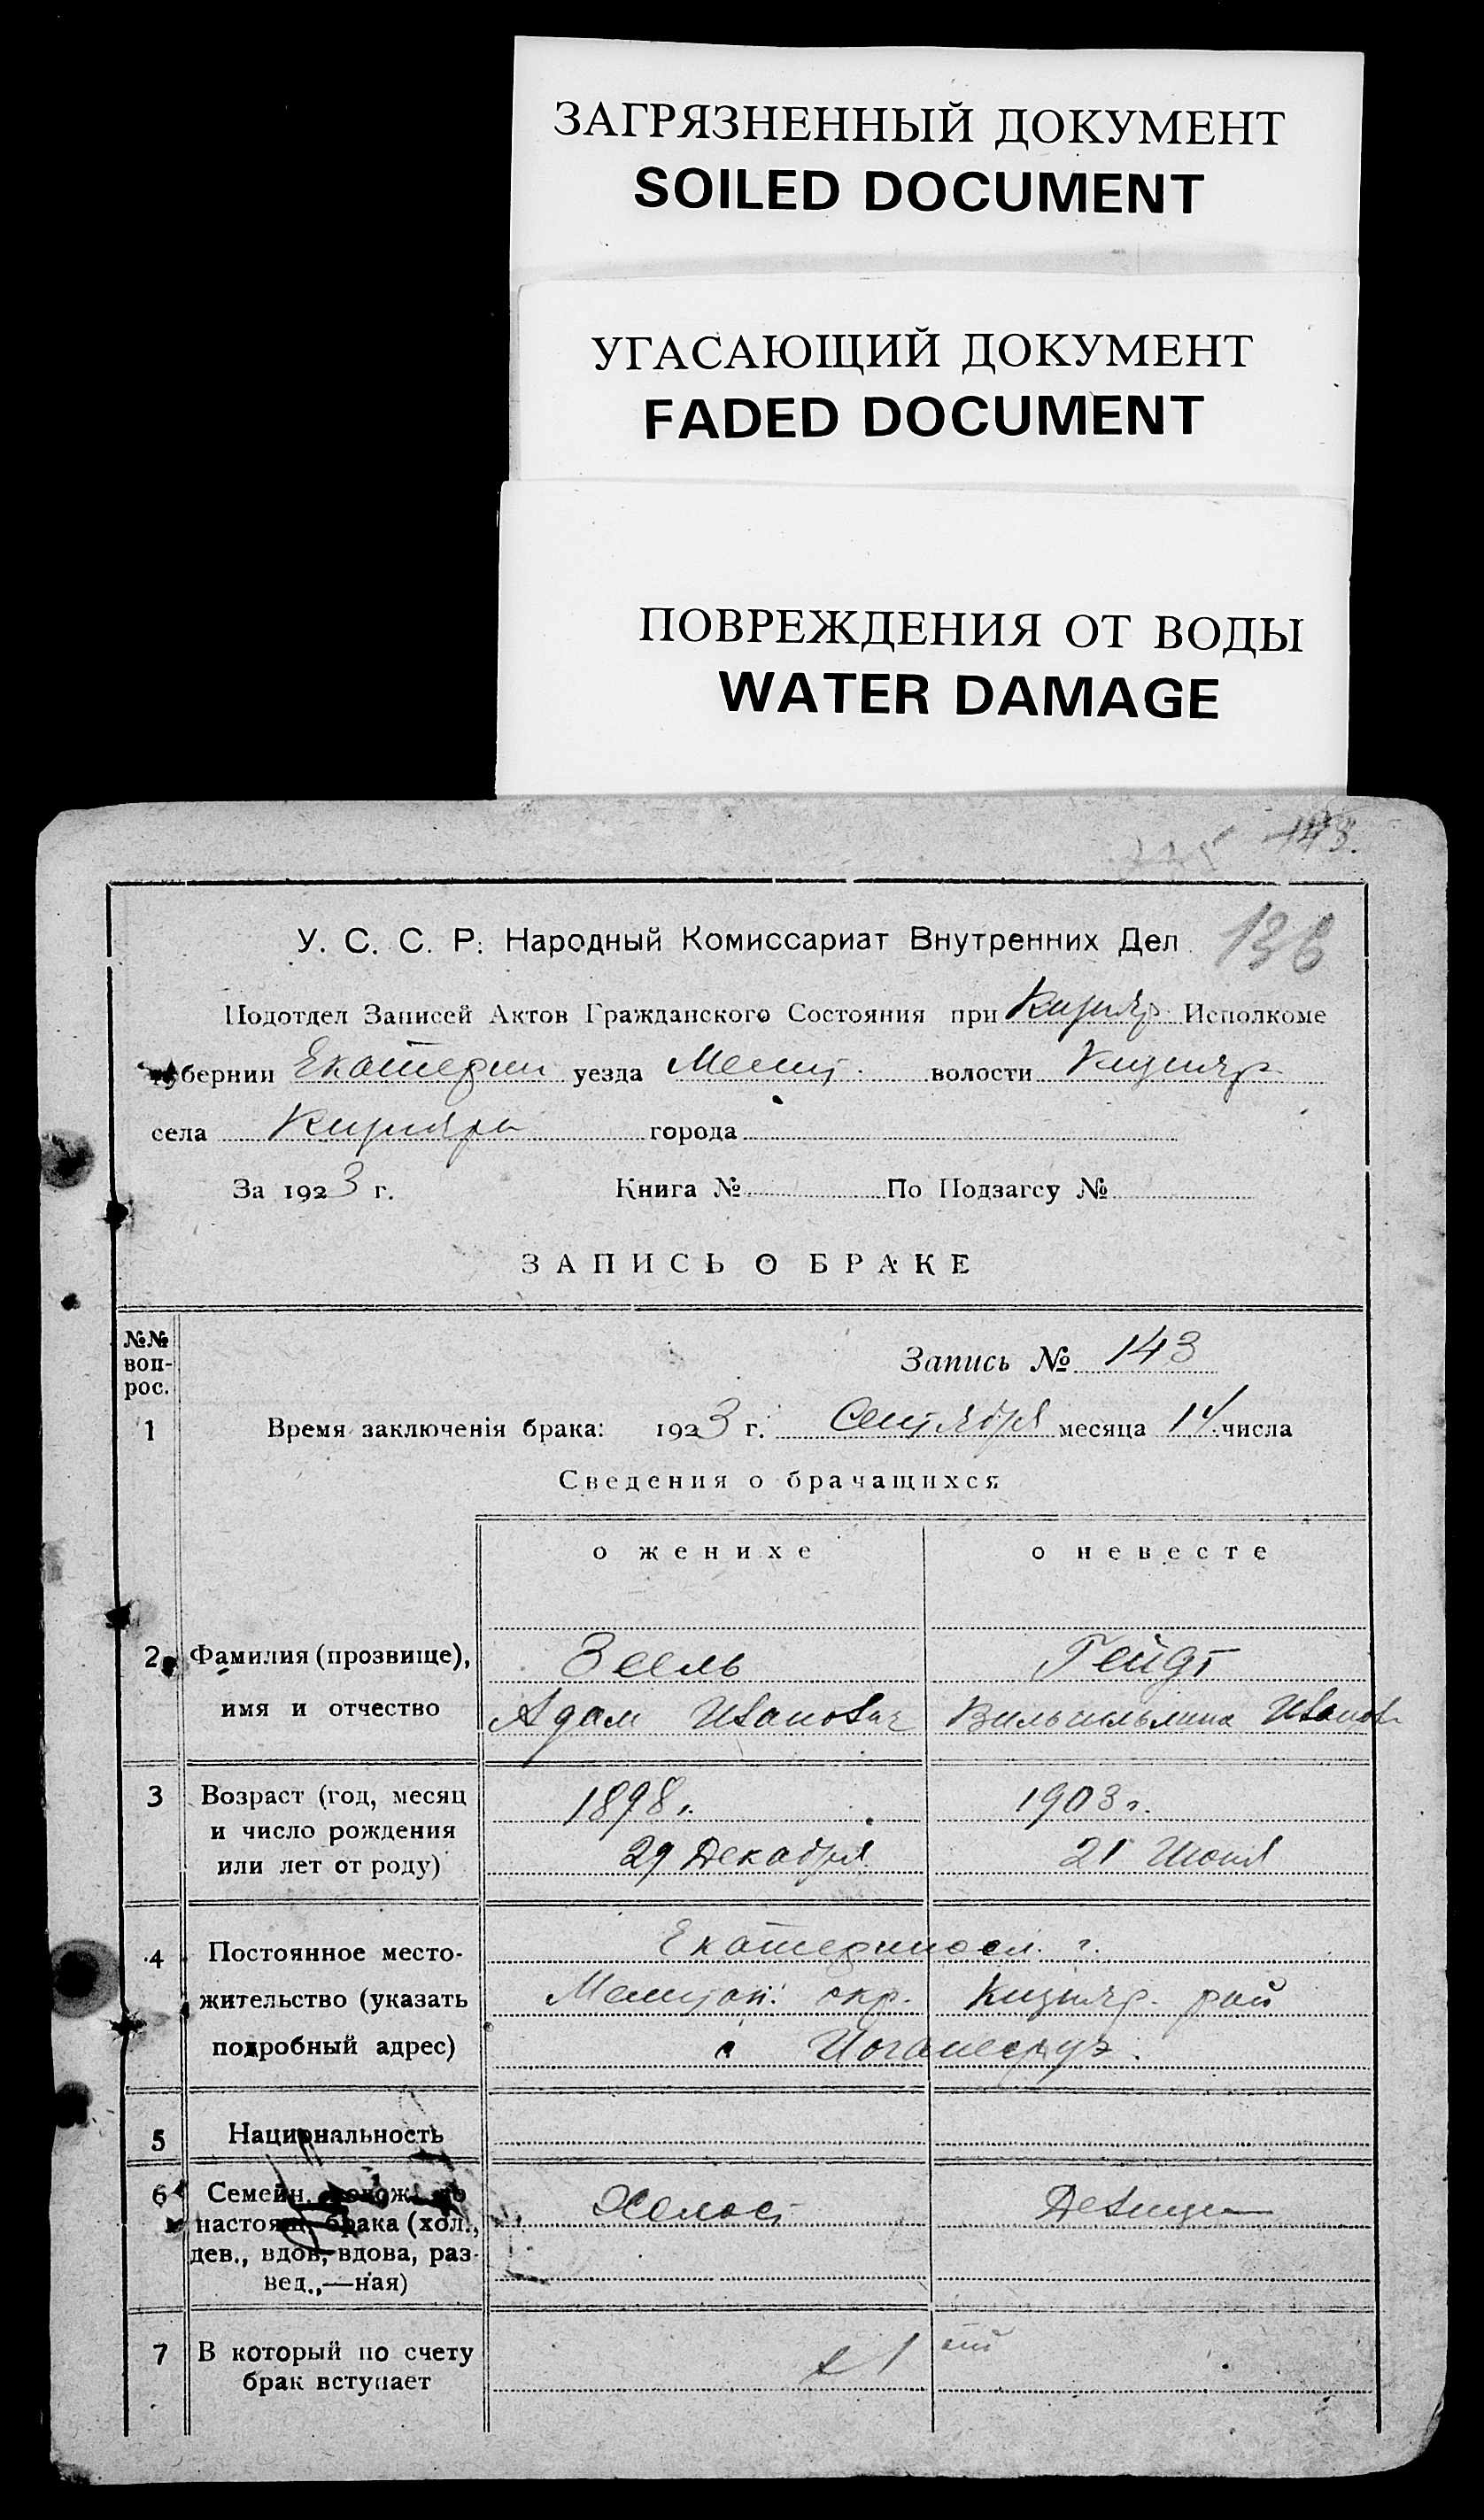 ЗАГРЯЗНЕННЫЙ ДОКУМЕНТ
SOILED DOCUMENT
УГАСАЮЩИЙ ДОКУМЕНТ
FADED DOCUMENT
ПОВРЕЖДЕНИЯ ОТ ВОДЫ
WATER DAMAGE
143.
136
У. С. С. Р. Народный Комиссариат Внутренних Дел
Подотдел Записей Актов Гражданского Состояния при Кизияр Исполкоме
губернии Екатерин уезда Мелит. волости Кизияр
села Кизияры города
За 1923 г. Книга № По Подзагсу №
ЗАПИСЬ О БРАКЕ
№№ воп-рос.
Запись № 143
1 Время заключенія брака: 1923 г. Сентября месяца 14 числа
Сведения о брачащихся
о женихе о невесте
2 Фамилия (прозвище), Зеель Гейдт
имя и отчество Адам Иванович Вильгельмина Иванов
3 Возраст (год, месяц 1898 г. 1903 г.
и число рождения
или лет от роду) 29 Декабря 21 Июня
4 Постоянное место- Екатериносл. г.
жительство (указать Мелитоп. окр. Кизияр. рай
подробный адрес) Иоганесруэ.
5 Национальность
6 Семейн. полож. до Холост Девица
настоящ. брака (хол.,
дев., вдов, вдова, раз-
вед.,—ная)
7 В который по счету 1
брак вступает